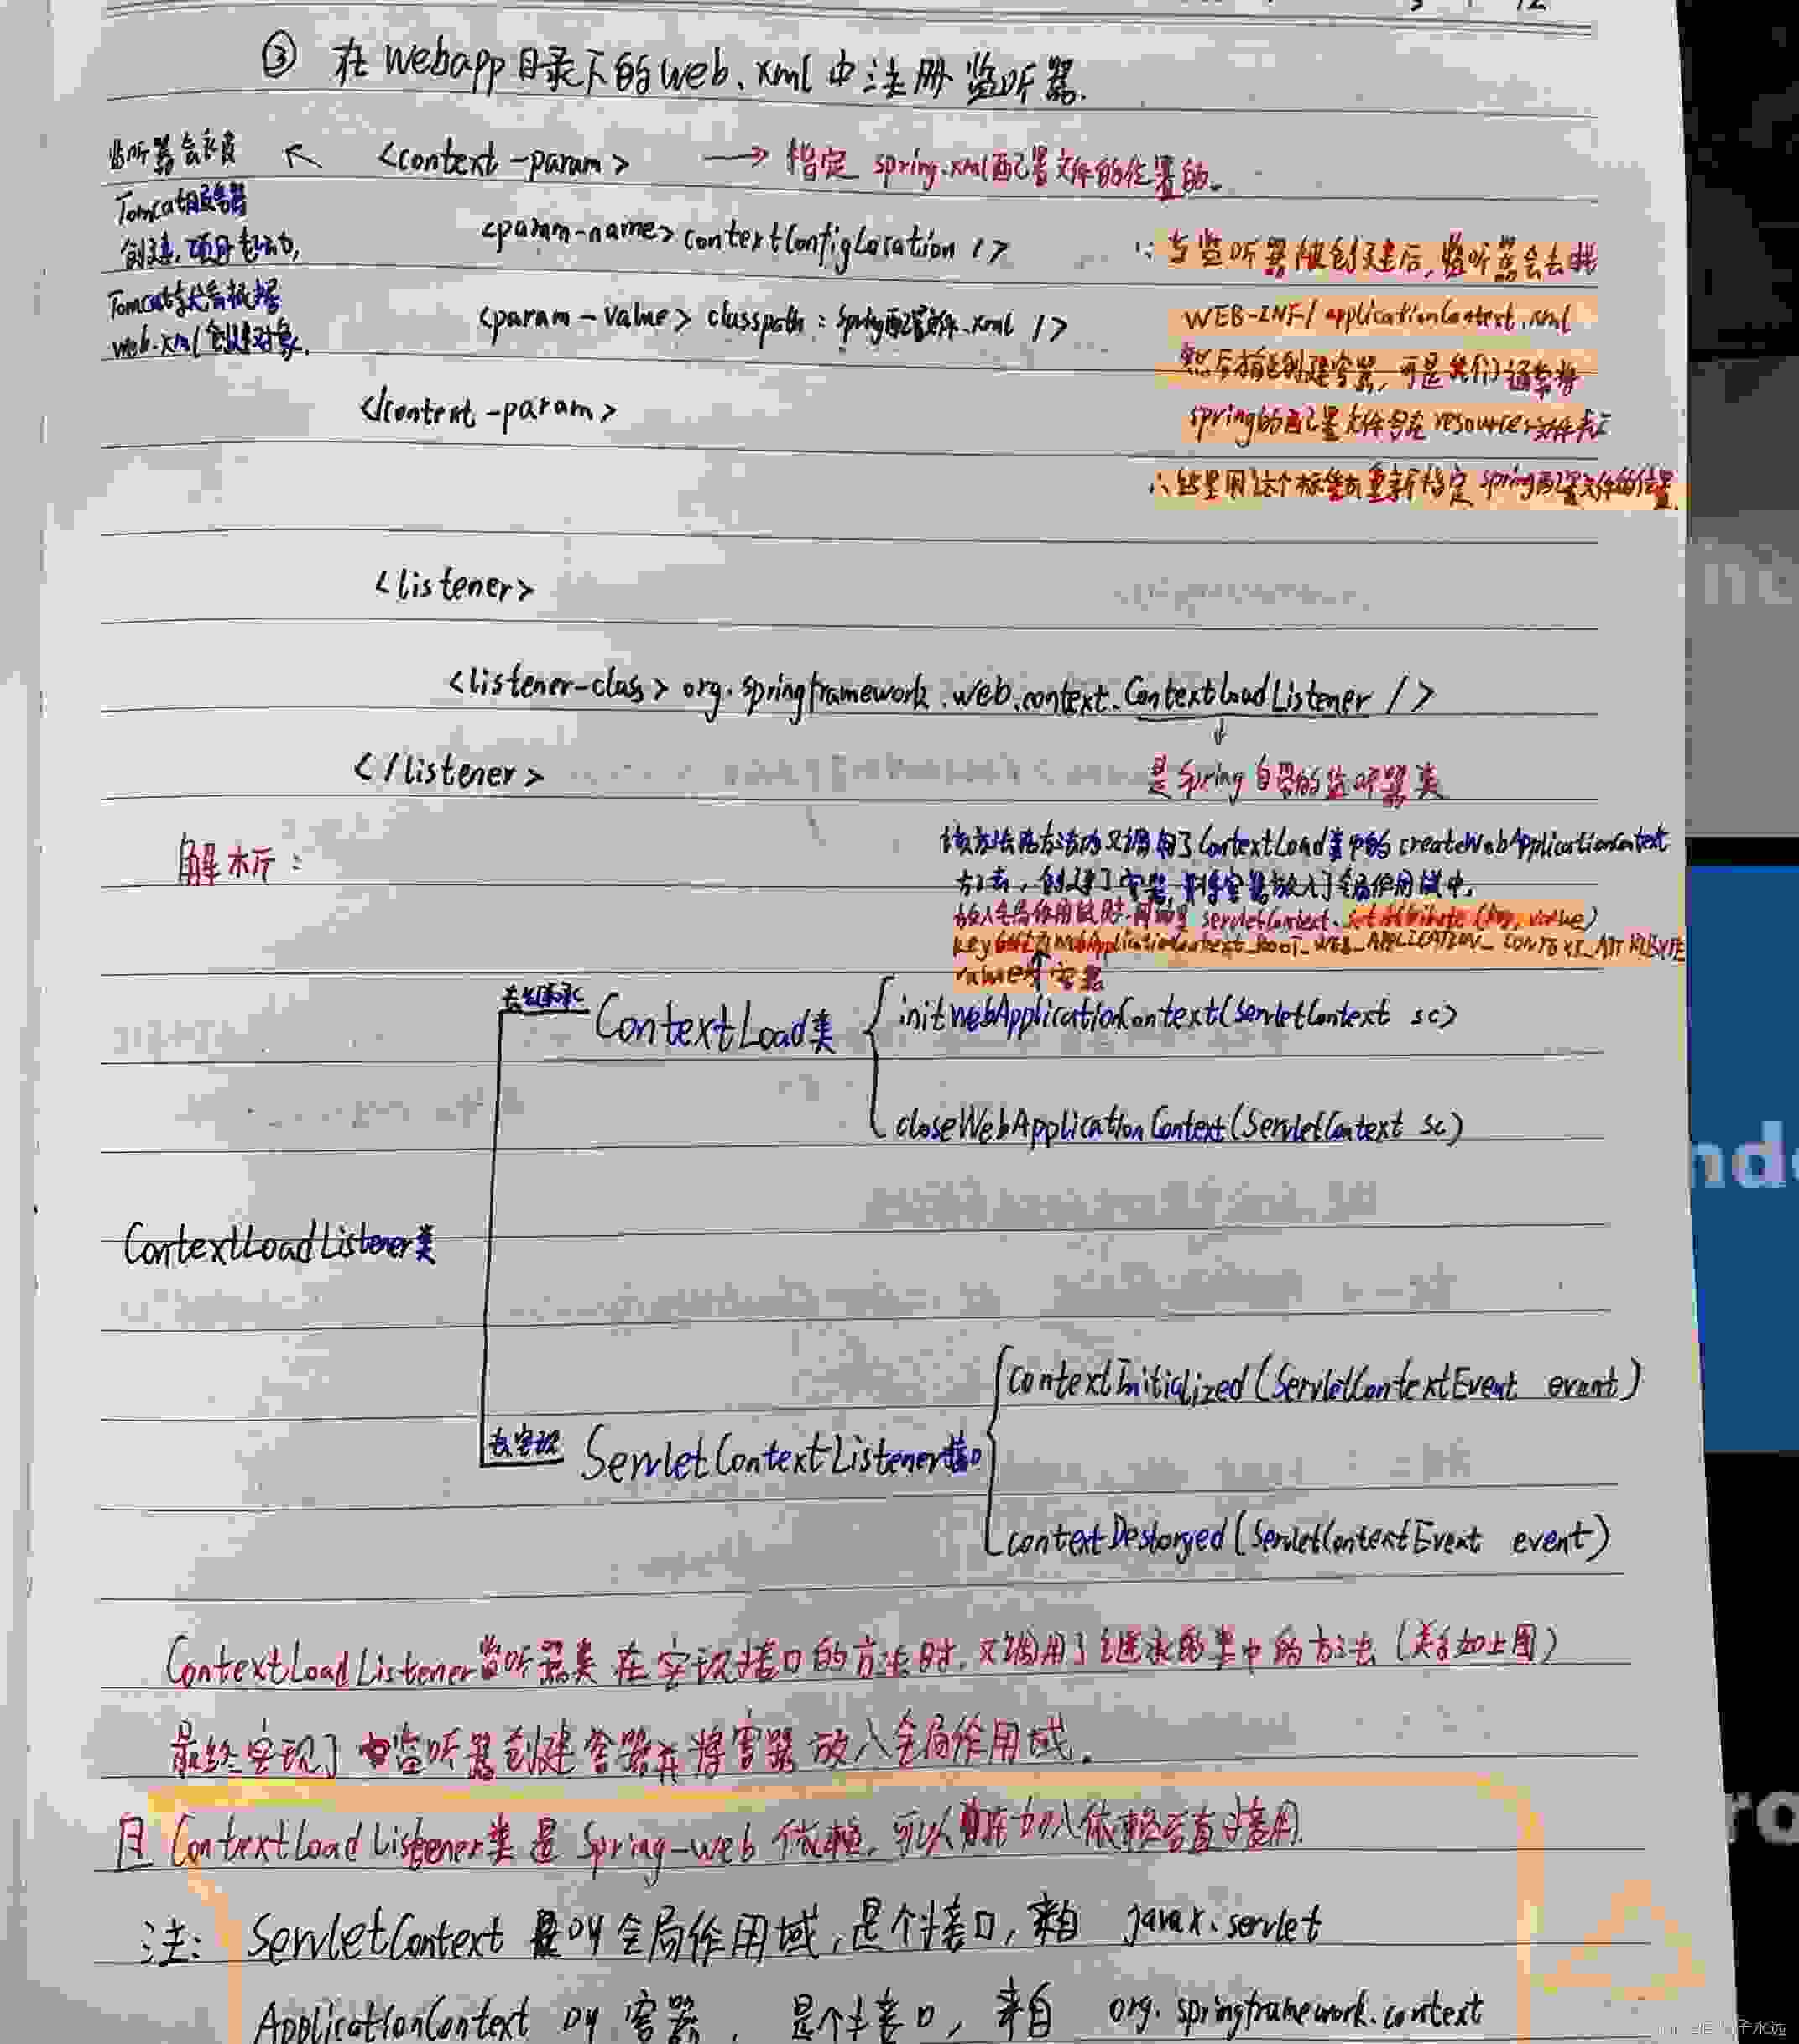 ③ 在webapp目录下的web.xml中注册监听器.
监听器会被
Tomcat服务器
创建,项目启动,
Tomcat会根据
web.xml创建对象.
<context-param> → 指定 spring.xml配置文件的位置的.
<param-name> contextConfigLocation />
<param-value> classpath: spring配置文件.xml />
</context-param>
∵当监听器被创建后,监听器会去找
WEB-INF/applicationContext.xml
然后创建容器,可是我们通常将
spring的配置文件写在resources文件夹下
∴这里用这个标签重新指定spring配置文件的位置.
<listener>
<listener-class> org.springframework.web.context.ContextLoadListener />
</listener>
是Spring自带的监听器类
解析:
该方法内又调用了ContextLoad类中的createWebApplicationContext
方法,创建了容器,将容器放入了全局作用域中.
放入全局作用域时,用的是servletContext.setAttribute(key, value)
key WebApplicationContext_ROOT_WEB_APPLICATION_CONTEXT_ATTRIBUTE
value 容器
去继承 ContextLoad类
initWebApplicationContext(ServletContext sc)
closeWebApplicationContext(ServletContext sc)
ContextLoadListener类
去实现 ServletContextListener接口
contextInitialized(ServletContextEvent event)
contextDestoryed(ServletContextEvent event)
ContextLoadListener监听器类在实现接口的方法时,又调用了继承的类中的方法(关系如上图)
最终实现了监听器创建容器并将容器放入全局作用域.
且ContextLoadListener类是Spring-web依赖,可以加入依赖后直接用.
注: ServletContext 叫全局作用域,是个接口,来自 javax.servlet
ApplicationContext 叫容器, 是个接口, 来自 org.springframework.context
子永远